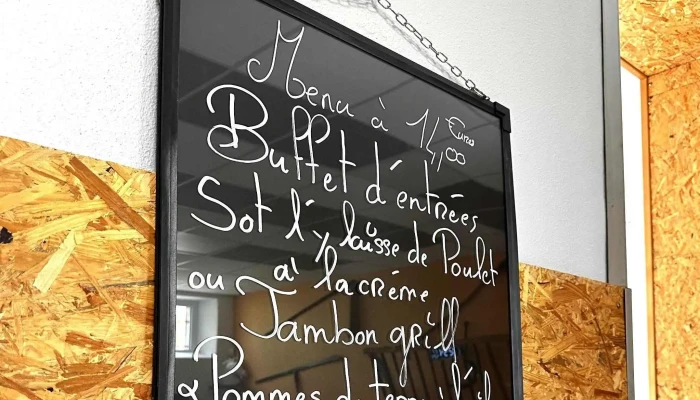 Menu à 14,00 Euros
Buffet d'entrées
Sot l'y laisse de Poulet
à la crème
ou Jambon grill
& Pommes de terre à l'